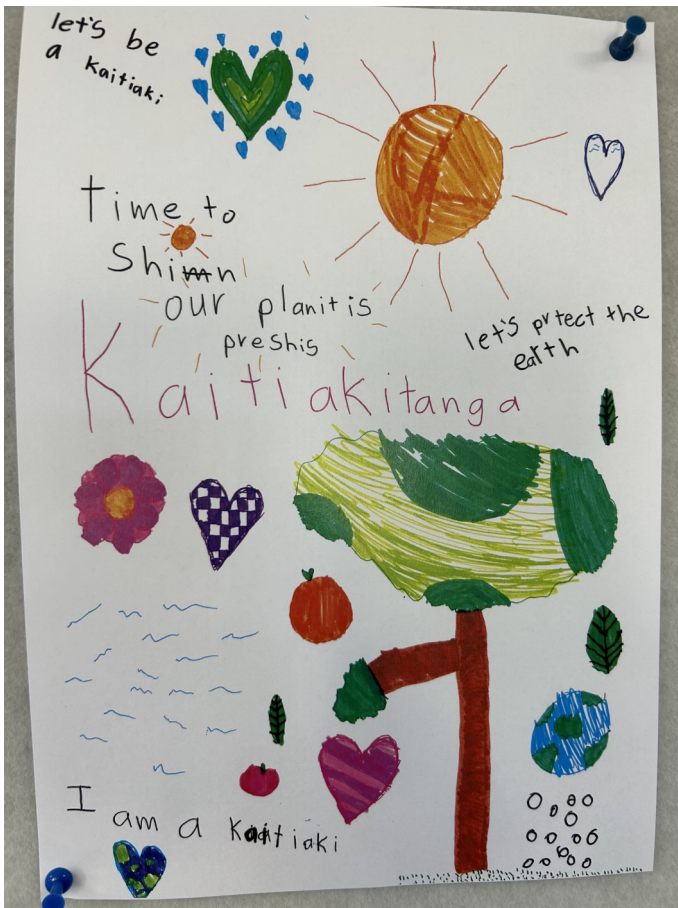 let's be
a Kaitiaki
Time to
Shimn
our planit is
preshis
let's prtect the
earth
Kaitiakitanga
I am a Kaitiaki